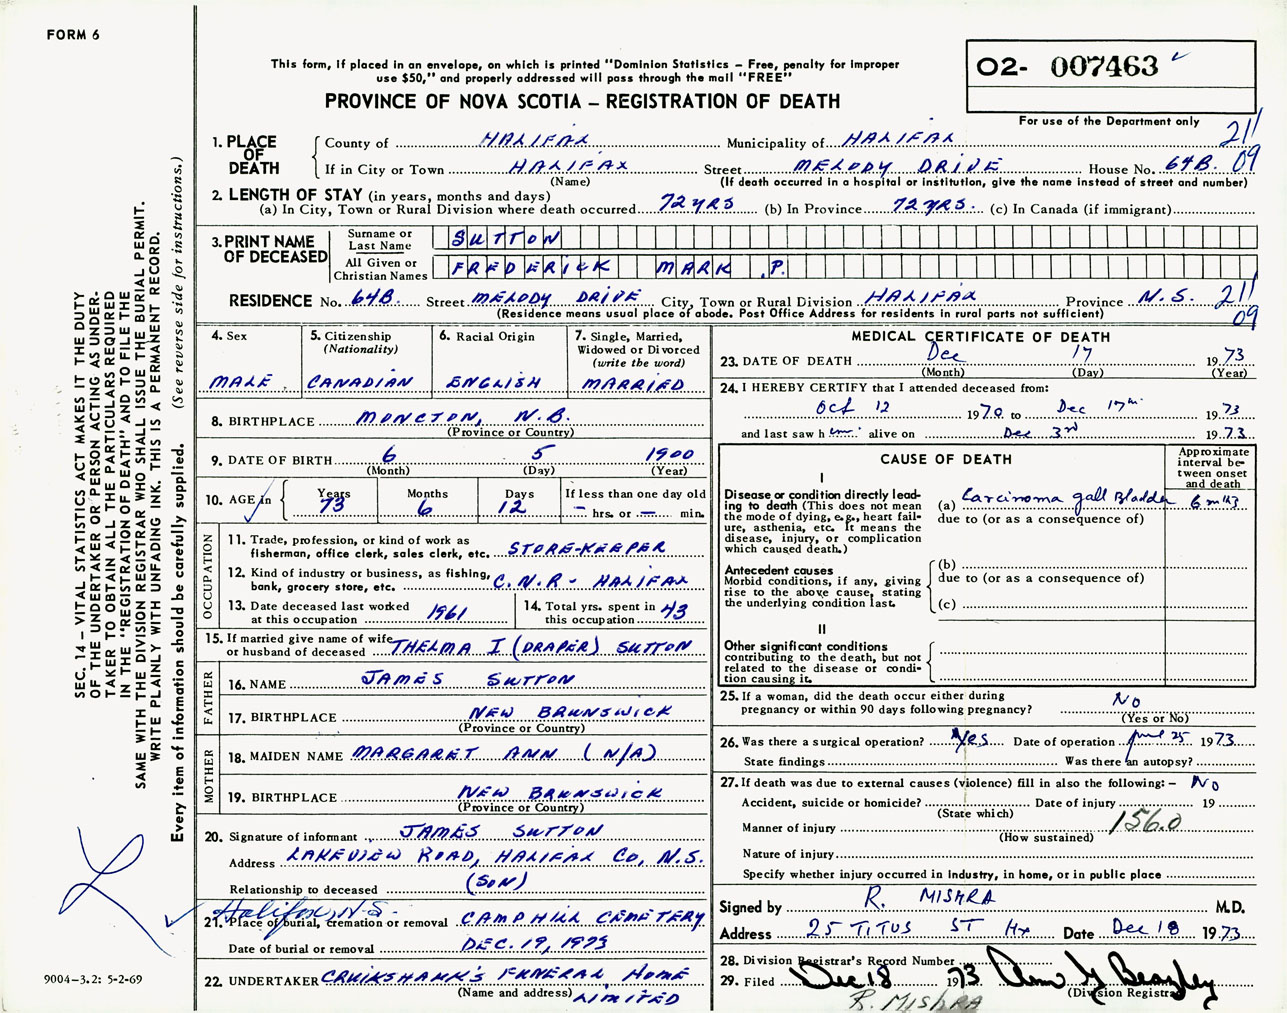 FORM 6
This form, if placed in an envelope, on which is printed "Dominion Statistics – Free, penalty for improper
use $50," and properly addressed will pass through the mail "FREE"
PROVINCE OF NOVA SCOTIA – REGISTRATION OF DEATH
02- 007463
For use of the Department only
211
09
1. PLACE OF DEATH
County of HALIFAX Municipality of HALIFAX
If in City or Town HALIFAX Street MELODY DRIVE House No. 64B.
(Name) (If death occurred in a hospital or institution, give the name instead of street and number)
2. LENGTH OF STAY (in years, months and days)
(a) In City, Town or Rural Division where death occurred 72 YRS (b) In Province 72 YRS. (c) In Canada (if immigrant)
3. PRINT NAME OF DECEASED
Surname or Last Name SUTTON
All Given or Christian Names FREDERICK MARK .P.
RESIDENCE No. 64B. Street MELODY DRIVE City, Town or Rural Division HALIFAX Province N.S. 211
(Residence means usual place of abode. Post Office Address for residents in rural parts not sufficient) 09
4. Sex
MALE.
5. Citizenship
(Nationality)
CANADIAN
6. Racial Origin
ENGLISH
7. Single, Married,
Widowed or Divorced
(write the word)
MARRIED
8. BIRTHPLACE MONCTON, N.B.
(Province or Country)
9. DATE OF BIRTH 6 5 1900
(Month) (Day) (Year)
10. AGE in
Years 73
Months 6
Days 12
If less than one day old
– hrs. or – min.
OCCUPATION
11. Trade, profession, or kind of work as
fisherman, office clerk, sales clerk, etc. STORE-KEEPER
12. Kind of industry or business, as fishing,
bank, grocery store, etc. C.N.R - HALIFAX
13. Date deceased last worked
at this occupation 1961
14. Total yrs. spent in
this occupation 43
15. If married give name of wife
or husband of deceased THELMA I (DRAPER) SUTTON
FATHER
16. NAME JAMES SUTTON
17. BIRTHPLACE NEW BRUNSWICK
(Province or Country)
MOTHER
18. MAIDEN NAME MARGARET ANN (N/A)
19. BIRTHPLACE NEW BRUNSWICK
(Province or Country)
20. Signature of informant JAMES SUTTON
Address LAKEVIEW ROAD, HALIFAX CO, N.S.
Relationship to deceased (SON)
Halifax, N.S.
21. Place of burial, cremation or removal CAMPHILL CEMETERY
Date of burial or removal DEC. 19, 1973
22. UNDERTAKER CRUIKSHANK'S FUNERAL HOME
(Name and address) LIMITED
MEDICAL CERTIFICATE OF DEATH
23. DATE OF DEATH Dec 17 1973
(Month) (Day) (Year)
24. I HEREBY CERTIFY that I attended deceased from:
Oct 12 1970 to Dec 17th 1973
and last saw h im alive on Dec 3rd 1973
CAUSE OF DEATH
Approximate
interval be-
tween onset
and death
I
Disease or condition directly lead-
ing to death (This does not
mean the mode of dying, e.g., heart fail-
ure, asthenia, etc. It means the
disease, injury, or complication
which caused death.)
(a) Carcinoma gall Bladder 6 mths
due to (or as a consequence of)
Antecedent causes
Morbid conditions, if any, giving
rise to the above cause, stating
the underlying condition last.
(b)
due to (or as a consequence of)
(c)
II
Other significant conditions
contributing to the death, but not
related to the disease or condi-
tion causing it.
25. If a woman, did the death occur either during
pregnancy or within 90 days following pregnancy? No
(Yes or No)
26. Was there a surgical operation? Yes Date of operation June 25 1973
State findings Was there an autopsy?
27. If death was due to external causes (violence) fill in also the following:– No
Accident, suicide or homicide? Date of injury 19
(State which)
Manner of injury 156.0
(How sustained)
Nature of injury
Specify whether injury occurred in Industry, in home, or in public place
Signed by R. MISHRA M.D.
Address 25 TITUS ST Hx Date Dec 18 1973
28. Division Registrar's Record Number
29. Filed Dec 18 1973
(Division Registrar)
R. MISHRA
SEC. 14 – VITAL STATISTICS ACT MAKES IT THE DUTY
OF THE UNDERTAKER OR PERSON ACTING AS UNDER-
TAKER TO OBTAIN ALL THE PARTICULARS REQUIRED
IN THE "REGISTRATION OF DEATH" AND TO FILE THE
SAME WITH THE DIVISION REGISTRAR WHO SHALL ISSUE THE BURIAL PERMIT.
WRITE PLAINLY WITH UNFADING INK. THIS IS A PERMANENT RECORD.
Every item of information should be carefully supplied. (See reverse side for instructions.)
9004-3.2: 5-2-69